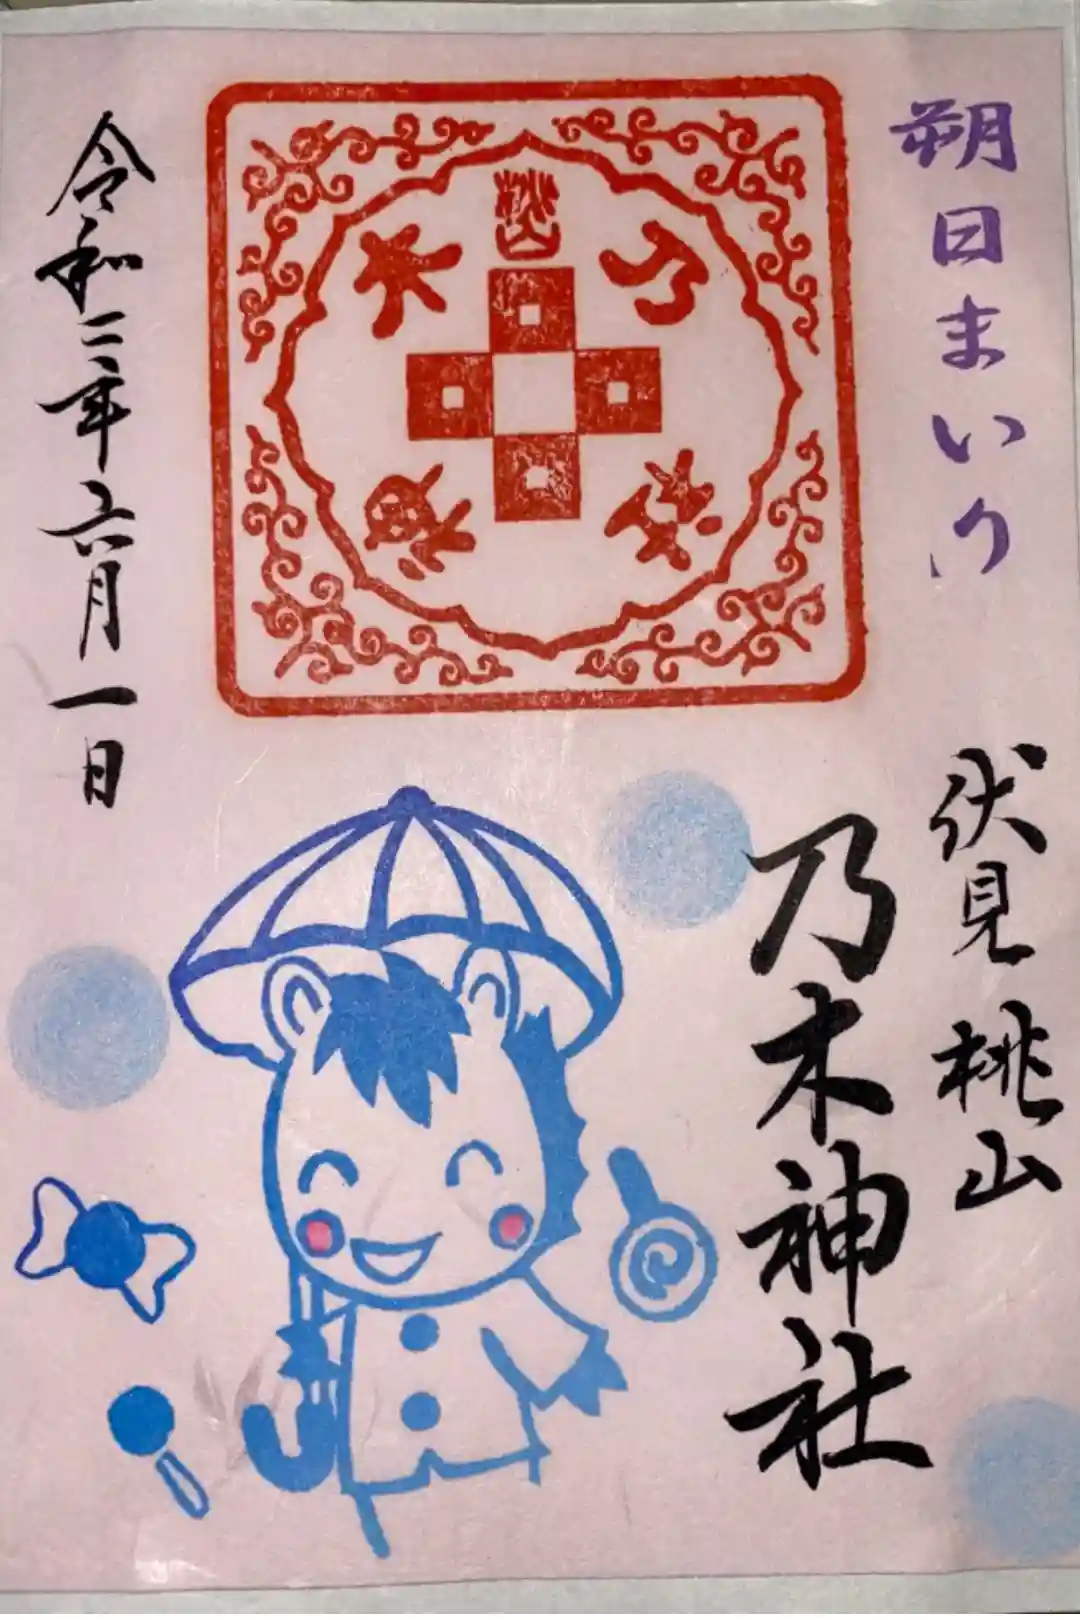 朔日まいり
伏見桃山
乃木神社
桃山
乃木
令和二年六月一日